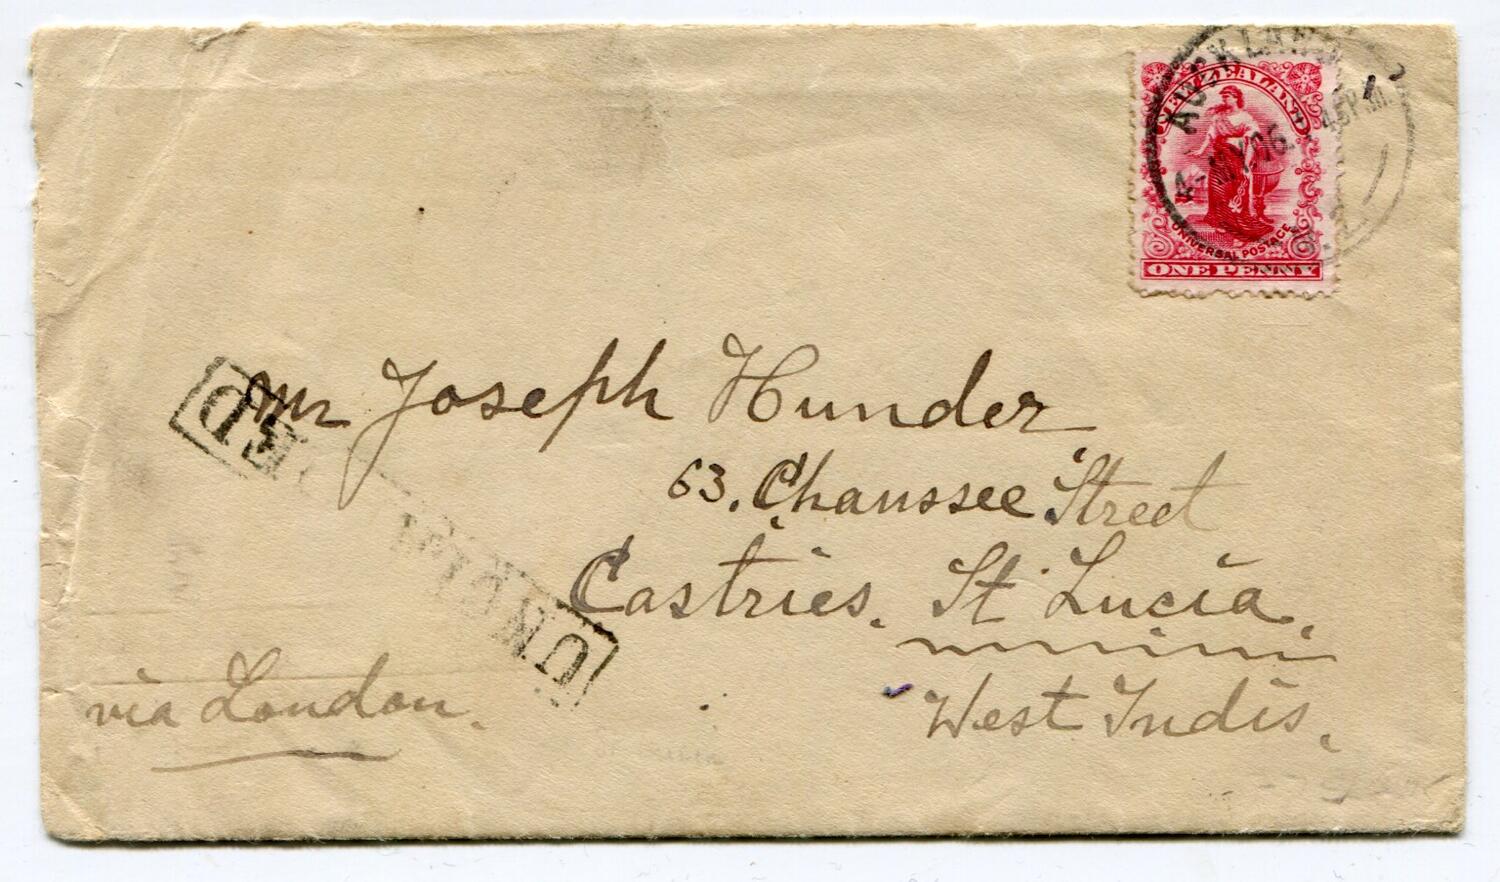 AUCKLAND
4-MY.06. 4.45P.M.
N.Z.
NEW ZEALAND
UNIVERSAL POSTAGE
ONE PENNY
Mr Joseph Hunder
63. Chaussee Street
Castries. St Lucia.
West Indis.
via London.
UNCLAIMED